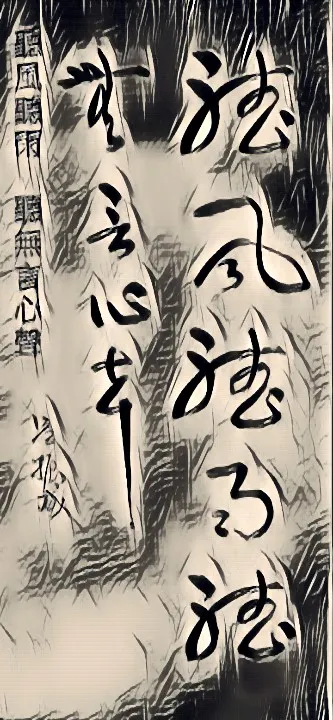 聽風聽雨聽
無言心聲
聽風聽雨 聽無言心聲